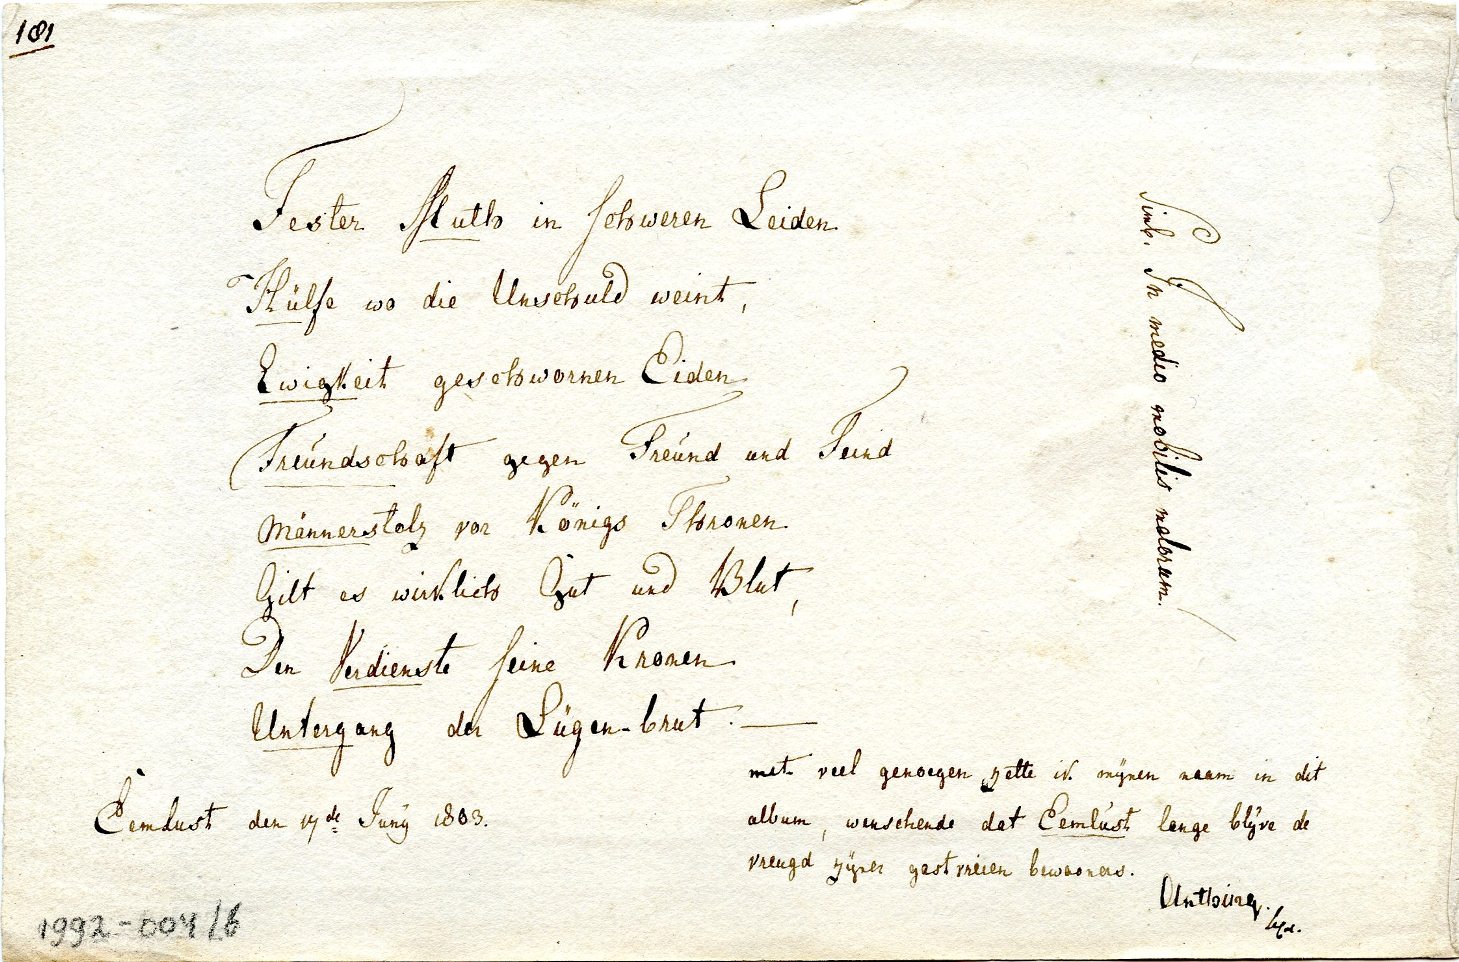 181
Fester Muth in schweren Leiden
Hülfe wo die Unschuld weint,
Ewigkeit geschwornen Eiden
Freündschaft gegen Freünd und Feind
Männerstolz vor Königs Thronen
Gilt es wirklich Gut und Blut,
Den Verdienste seine Kronen
Untergang der Lügen-brut.
Simb. In medio nobilis malorum.
Eemlust den 17de Juny 1803.
met veel genoegen zette ik mÿnen naam in dit
album, wenschende dat Eemlust lange blÿve de
vreugd zÿner gastvreien bewooners.
1992-004/6